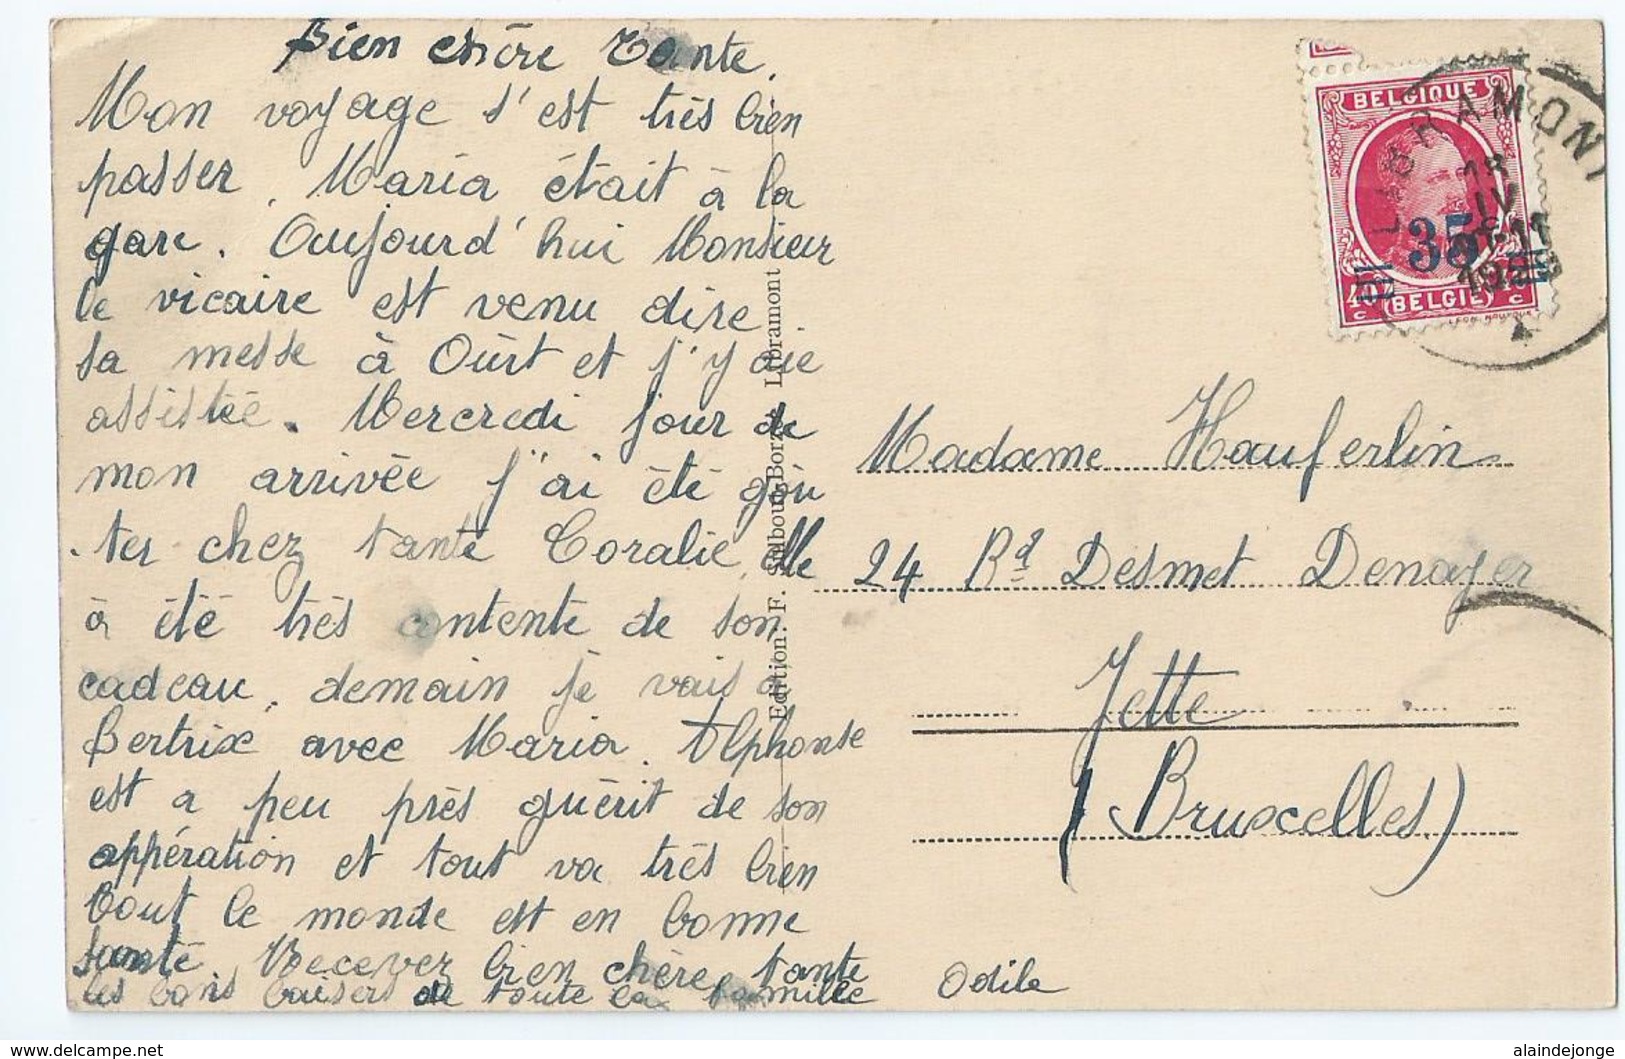 Bien chère Tante,
Mon voyage s'est très bien
passer. Maria était à la
gare. Oujourd'hui Monsieur
le vicaire est venu dire
sa messe à Ourt et j'y aie
assistée. Mercredi jour de
mon arrivée j'ai été goù
ter chez tante Coralie, elle
à été très contente de son
cadeau, demain je vais à
Bertrix avec Maria. Alphonse
est a peu près guèrit de son
appération et tout va très bien
Tout le monde est en bonne
santé. Recevez bien chère tante
les bons baisers de toute la famille
Odile
Edition: F. Borzée, Libramont
BELGIQUE
35
40 c (BELGIË) 40 c
LIBRAMONT
18
IV
11
Madame Hauferlin
24 Bd Desmet Denayer
Jette
(Bruxelles)
https://www.delcampe.net
alaindejonge